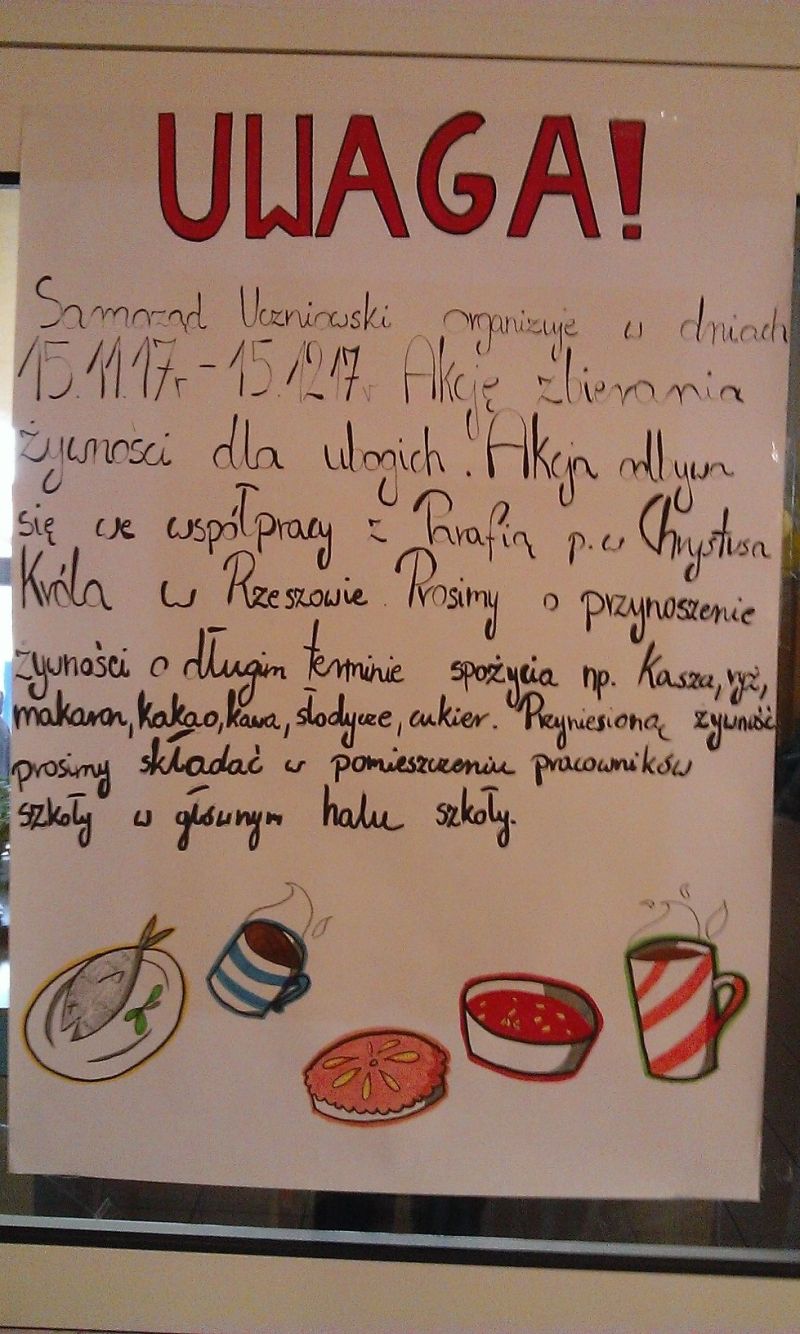 UWAGA!
Samorząd Uczniowski organizuje w dniach
15.11.17r - 15.12.17r Akcję zbierania
żywności dla ubogich. Akcja odbywa
się we współpracy z Parafią p.w Chrystusa
Króla w Rzeszowie. Prosimy o przynoszenie
żywności o długim terminie spożycia np. Kasza, ryż,
makaron, kakao, kawa, słodycze, cukier. Przyniesioną żywność
prosimy składać w pomieszczeniu pracowników
szkoły w głównym halu szkoły.